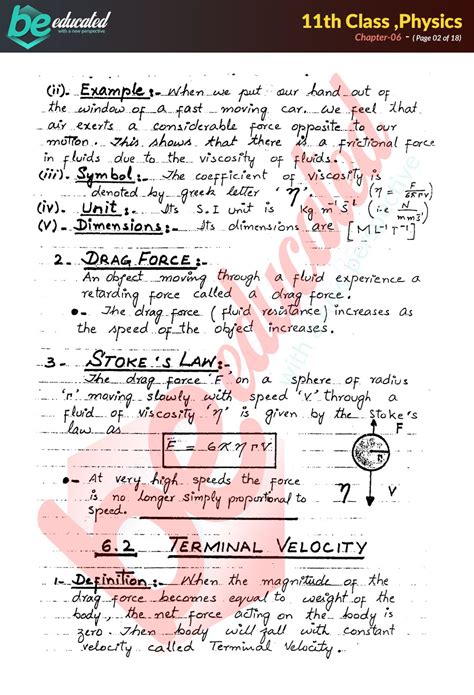 be educated
with a new perspective
11th Class ,Physics
Chapter-06 - ( Page 02 of 18)
(ii). Example:- When we put our hand out of
the window of a fast moving car. we feel that
air exerts a considerable force opposite to our
motion. This shows that there is a frictional force
in fluids due to the viscosity of fluids.
(iii). Symbol:- The coefficient of viscosity is
denoted by greek letter 'η'. (η = F/6πrv)
(iv). Unit:- Its S.I unit is Kg m⁻¹ S⁻¹ (i.e N/mm S⁻¹)
(v)- Dimensions:- Its dimensions are [ML⁻¹T⁻¹]
2- DRAG FORCE:-
An object moving through a fluid experience a
retarding force called a drag force.
•- The drag force (fluid resistance) increases as
the speed of the object increases.
3- STOKE'S LAW:-
The drag force 'F' on a sphere of radius
'r' moving slowly with speed 'v' through a
fluid of viscosity 'η' is given by the Stoke's
law as
F
F = 6πηrv
r
η
v
•- At very high speeds the force
is no longer simply proportional to
speed.
6.2 TERMINAL VELOCITY
1- Definition:- When the magnitude of the
drag force becomes equal to weight of the
body, the net force acting on the body is
zero. Then body will fall with constant
velocity called Terminal Velocity.
be educated